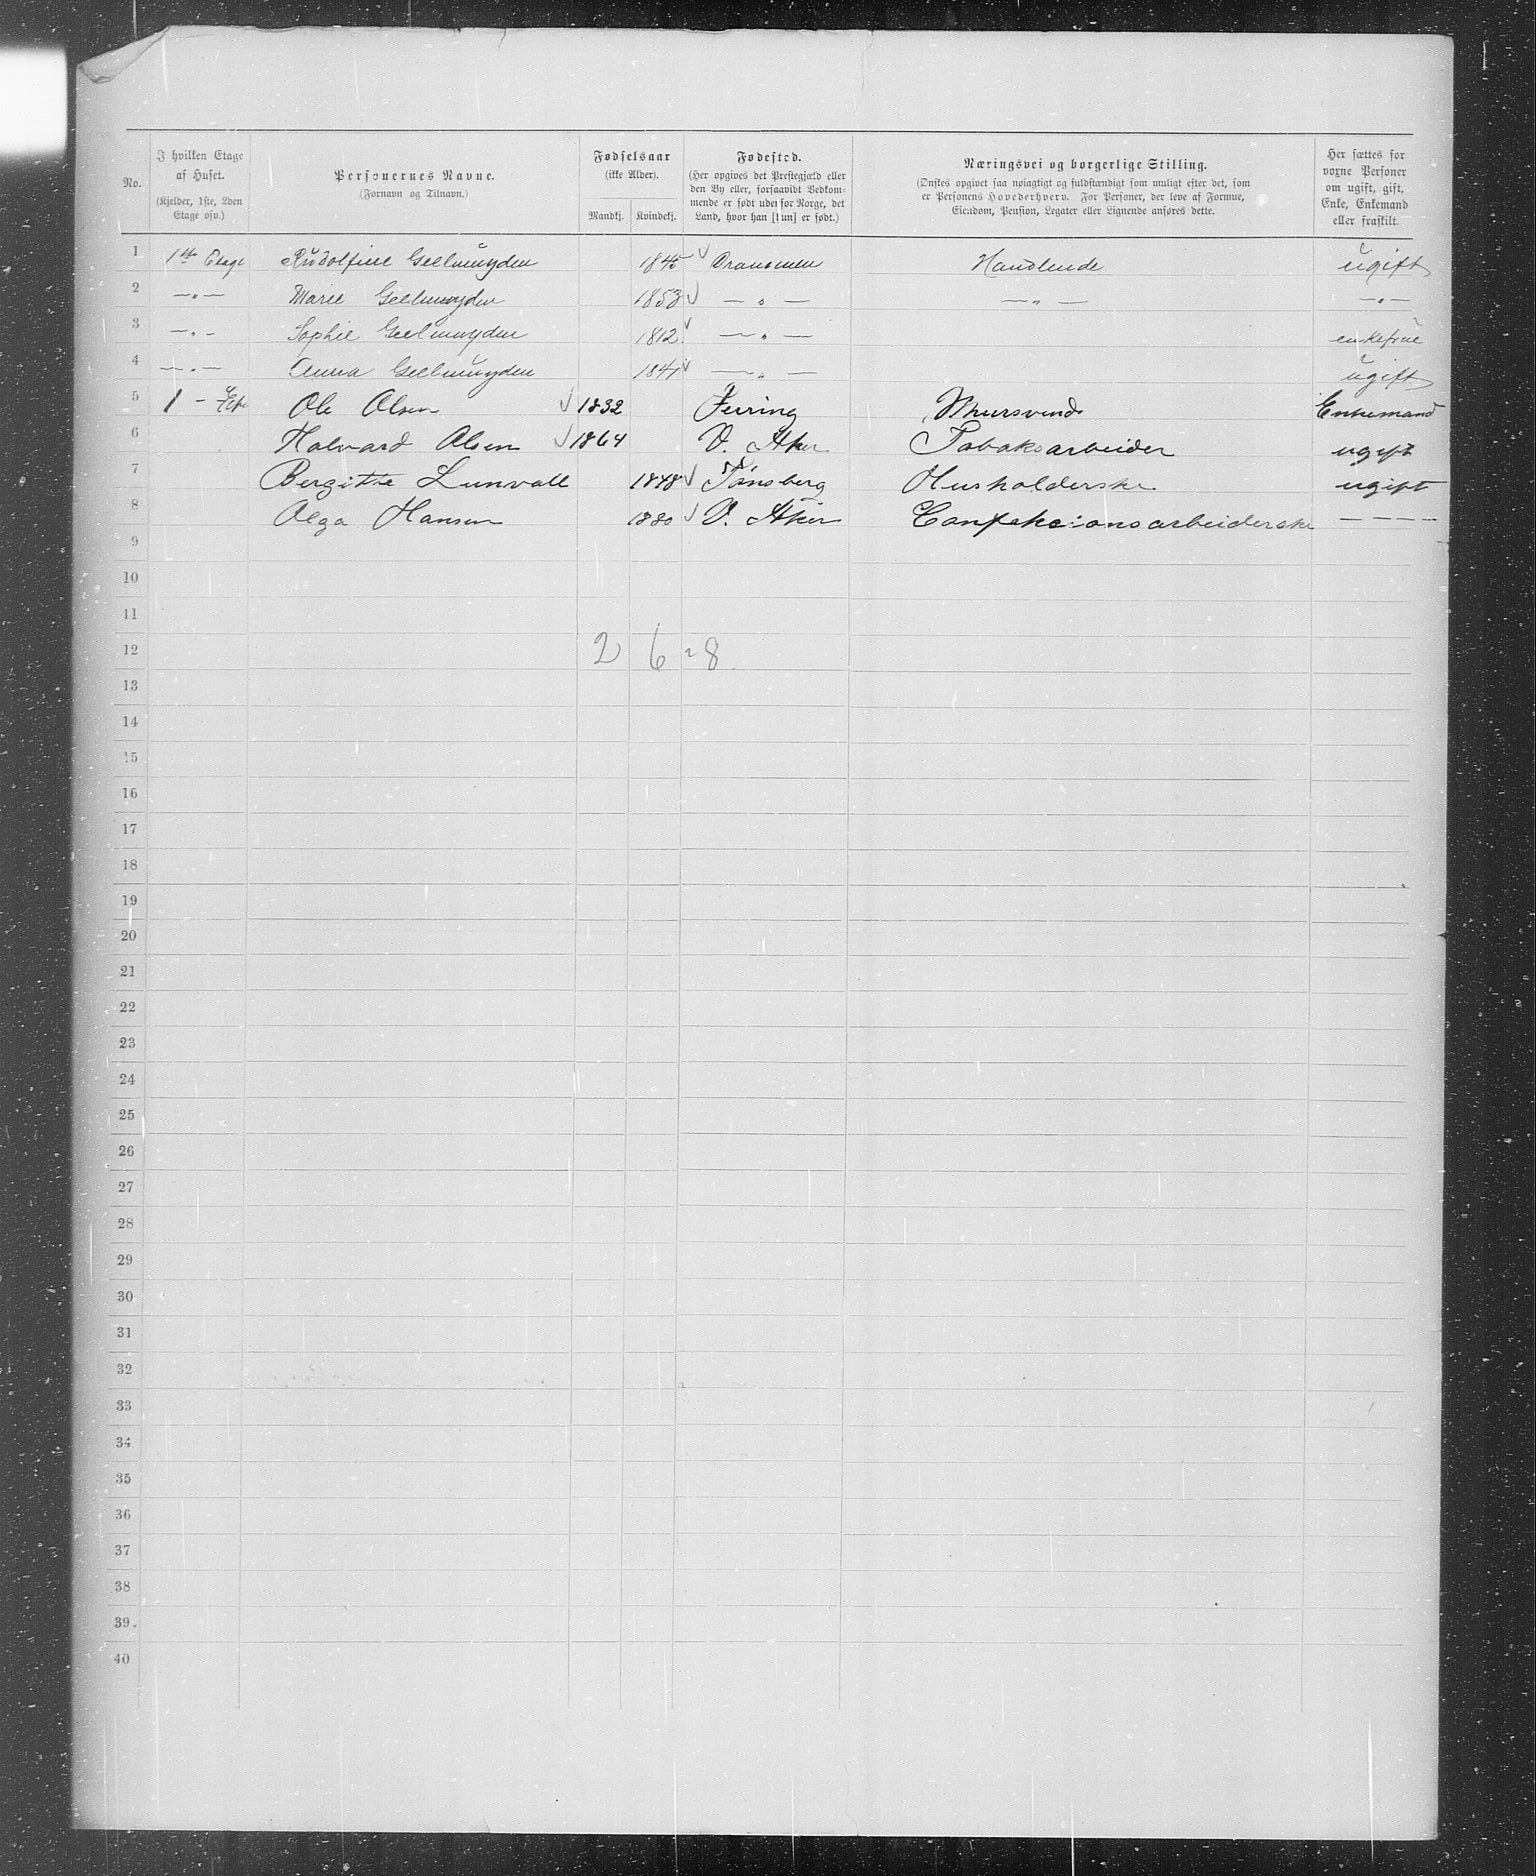 No. | I hvilken Etage af Huset. (Kjelder, 1ste, 2den Etage osv.) | Personernes Navne. (Fornavn og Tilnavn.) | Fødselsaar (ikke Alder). Mandkj. Kvindekj. | Fødested. (Her opgives det Prestegjæld eller den By eller, forsaavidt Vedkommende er født udenfor Norge, det Land, hvor han [hun] er født.) | Næringsvei og borgerlige Stilling. (Ønskes opgivet saa nøiagtigt og fuldstændigt som muligt efter det, som er Personens Hovederhverv. For Personer, der leve af Formue, Eiendom, Pension, Legater eller Lignende anføres dette. | Her sættes for voxne Personer om ugift, gift, Enke, Enkemand eller fraskilt.
1 1ste Etage Rudolfine Geelmuyden 1845 √ Drammen Handlende ugift
2 —„— Marie Geelmuyden 1853 √ —„— —„— —„—
3 —„— Sophie Geelmuyden 1812 √ —„— enkefrue
4 —„— Anna Geelmuyden 1841 √ —„— ugift
5 1 - Ole Olsen √ 1832 Mursvend Enkemand
6 Halvard Olsen √ 1864 V. Aker Tobaksarbeider ugift
7 Bergitte Lunvall 1848 √ Tønsberg Husholderske ugift
8 Olga Hansen 1880 √ V. Aker Confeksionsarbeiderske — — — —
9
10
11
12 2 6 = 8
13
14
15
16
17
18
19
20
21
22
23
24
25
26
27
28
29
30
31
32
33
34
35
36
37
38
39.
40